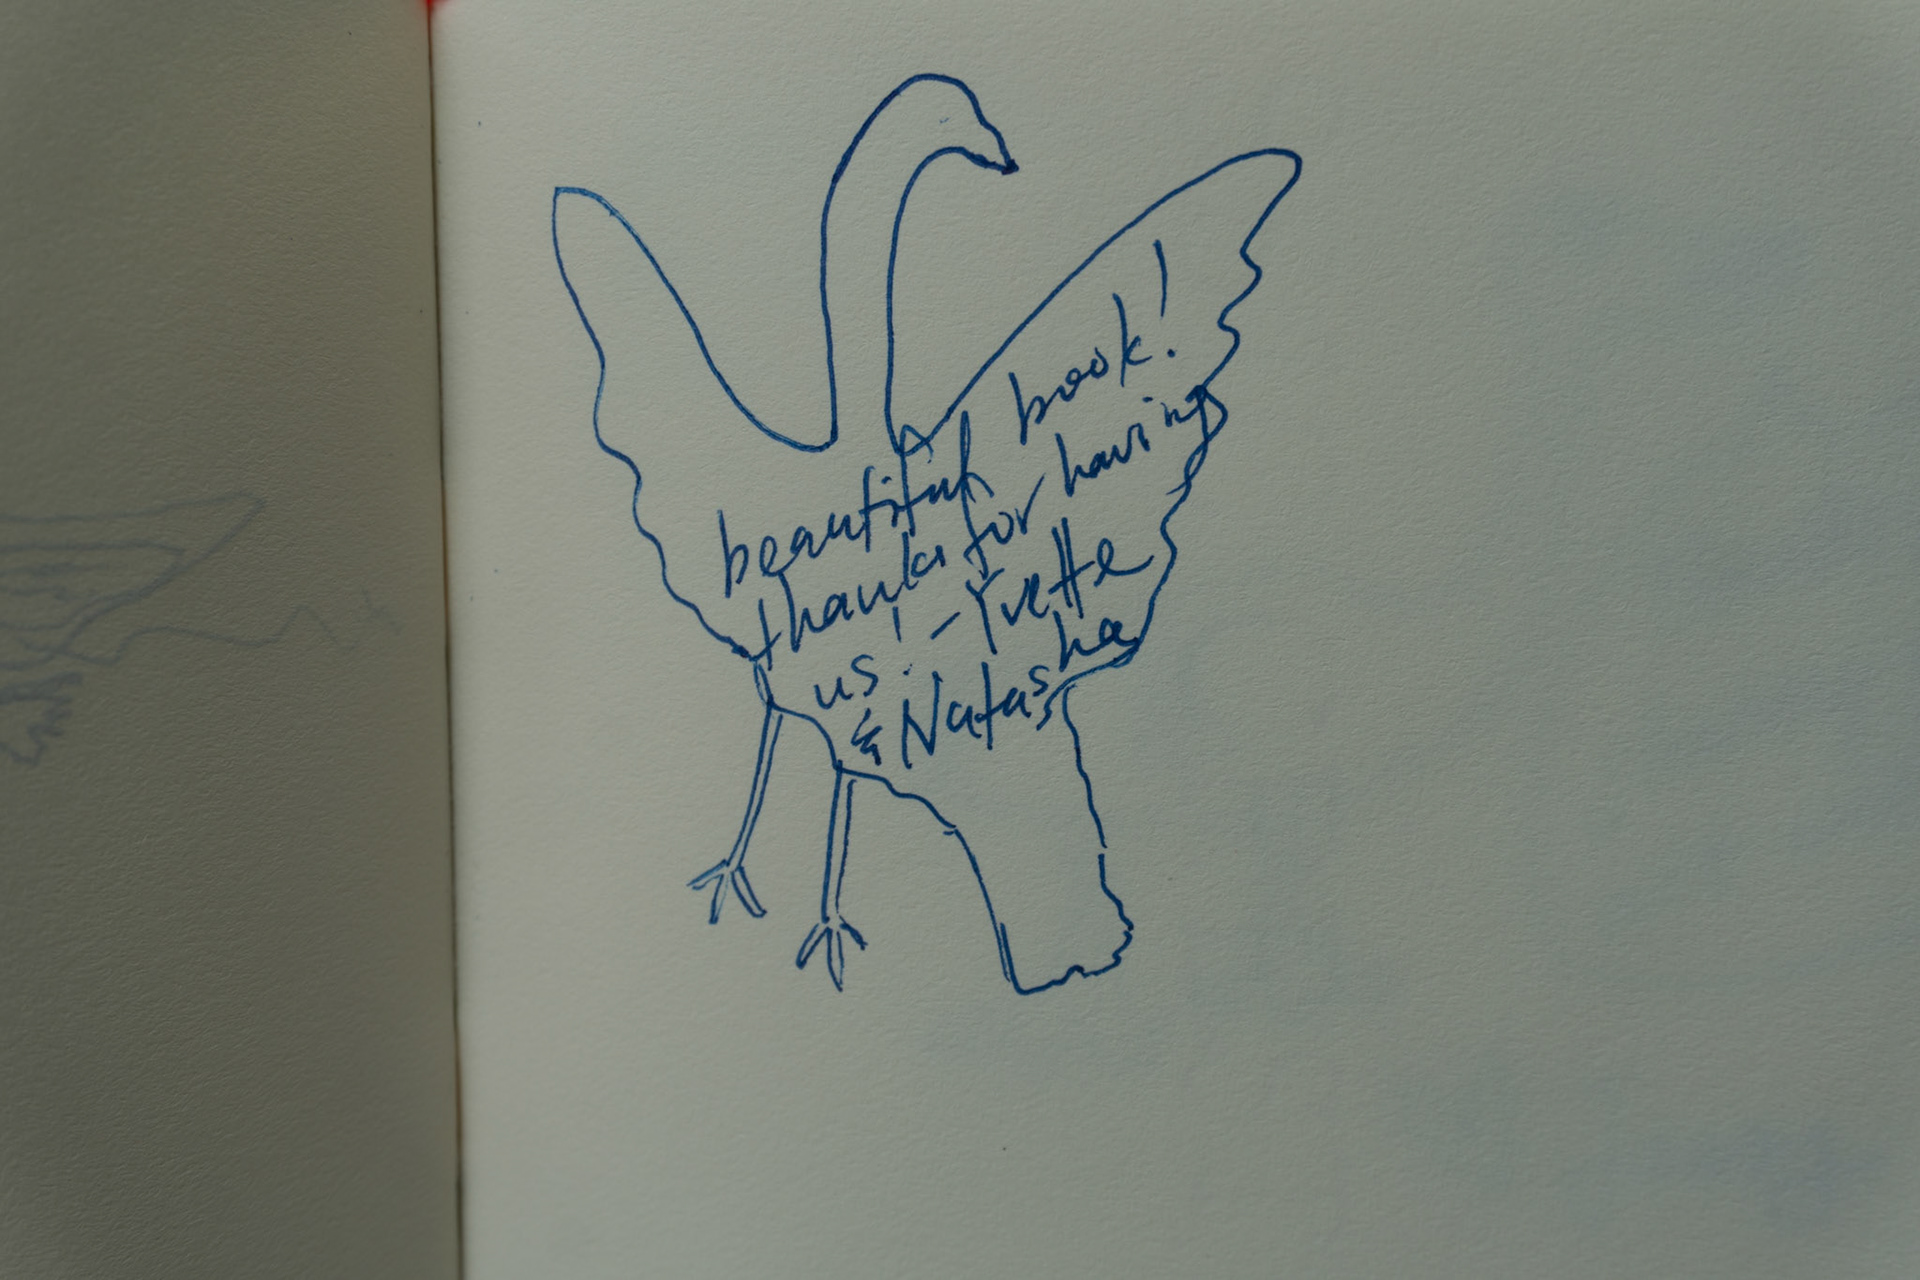 beautiful book!
thanks for having
us! - Yvette
& Natasha